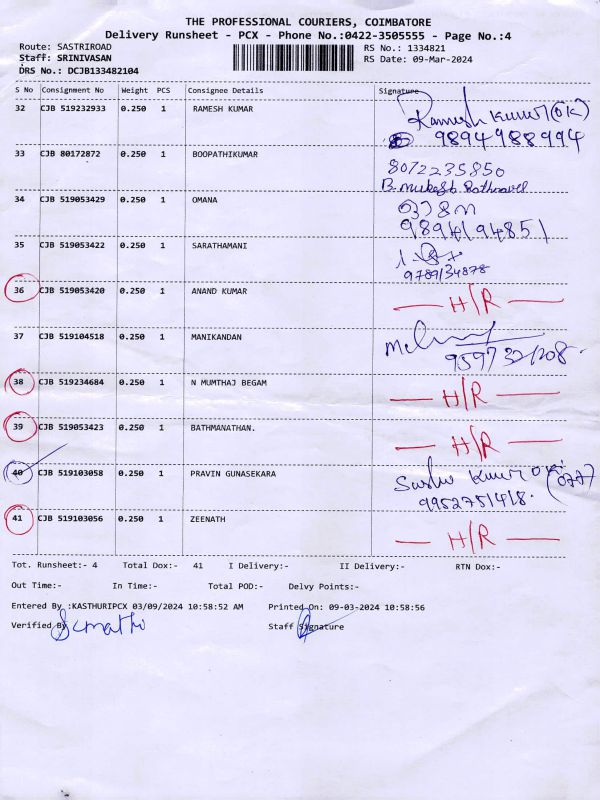 THE PROFESSIONAL COURIERS, COIMBATORE
Delivery Runsheet - PCX - Phone No.:0422-3505555 - Page No.:4
Route: SASTRIROAD RS No.: 1334821
Staff: SRINIVASAN RS Date: 09-Mar-2024
DRS No.: DCJB133482104
S No Consignment No Weight PCS Consignee Details Signature
32 CJB 519232933 0.250 1 RAMESH KUMAR Ramesh Kumar (OK)
9894988994
33 CJB 80172872 0.250 1 BOOPATHIKUMAR 8072235850
B. Mukesh Rathnavel
34 CJB 519053429 0.250 1 OMANA
9894194851
35 CJB 519053422 0.250 1 SARATHAMANI
9789134878
36 CJB 519053420 0.250 1 ANAND KUMAR — H/R —
37 CJB 519104518 0.250 1 MANIKANDAN
9597321208.
38 CJB 519234684 0.250 1 N MUMTHAJ BEGAM — H/R —
39 CJB 519053423 0.250 1 BATHMANATHAN. — H/R —
40 CJB 519103058 0.250 1 PRAVIN GUNASEKARA Kumar OK.
9952751418.
41 CJB 519103056 0.250 1 ZEENATH — H/R —
Tot. Runsheet:- 4 Total Dox:- 41 I Delivery:- II Delivery:- RTN Dox:-
Out Time:- In Time:- Total POD:- Delvy Points:-
Entered By :KASTHURIPCX 03/09/2024 10:58:52 AM Printed On: 09-03-2024 10:58:56
Verified By Staff Signature